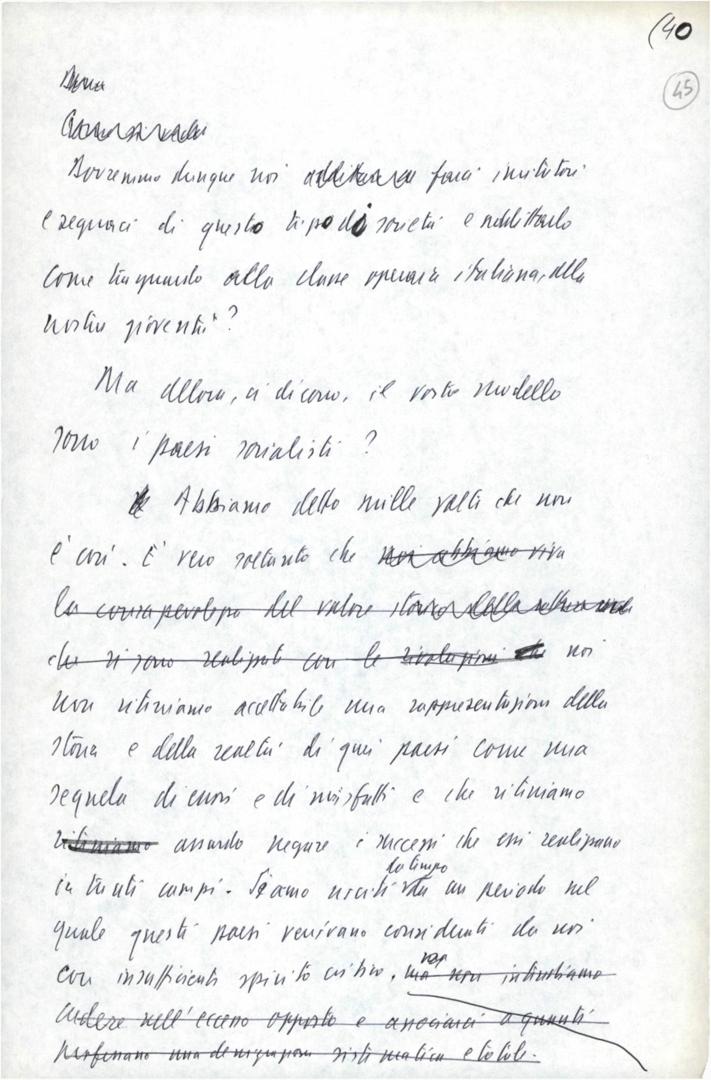 (40
45
Dovremmo dunque noi additare farci imitatori
e seguaci di questo tipo di società e additarlo
come traguardo alla classe operaia italiana, alla
nostra gioventù?
Ma allora, ci dicono, il vostro modello
sono i paesi socialisti?
Abbiamo detto mille volte che non
è così. È vero soltanto che noi abbiamo viva
la consapevolezza del valore storico della
che si sono realizzati con le rivoluzioni che noi
non riteniamo accettabile una rappresentazione della
storia e della realtà di quei paesi come una
sequela di errori e di misfatti e che riteniamo
riteniamo assurdo negare i successi che essi realizzano
in tanti campi. Siamo usciti da tempo da un periodo nel
quale questi paesi venivano considerati da noi
con insufficiente spirito critico. ma non intendiamo
cadere nell'eccesso opposto e associarci a quanti
professano una denigrazione sistematica e totale.